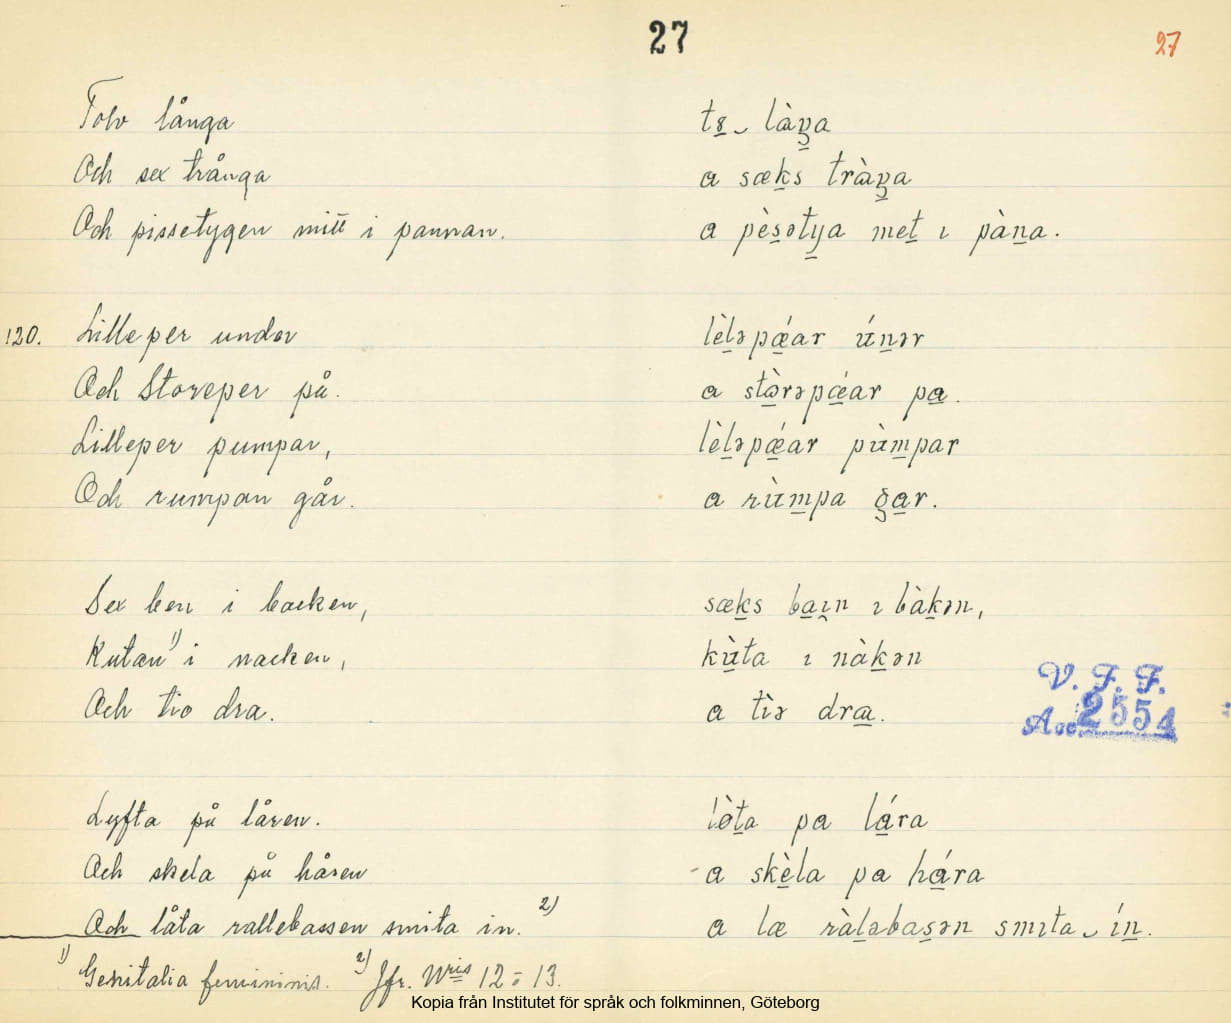 27
27
Tolv långa
Och sex trånga
Och pissetygen mitt i pannan.
120. Lilleper under
Och Storeper på.
Lilleper pumpar,
Och rumpan går.
Sex ben i backen,
Kutan 1) i nacken,
Och tio dra.
Lyfta på låren.
Och skela på håren
Och låta rallebassen smita in. 2)
1) Genitalia femininis. 2) Jfr. Nris 12 o 13.
làŋa
a sæks tràŋa
a pèsətyа met ı pàna.
lèləpǽar únər
a stòrərpǽar pa.
lèləpǽar pùmpar
a rùmpa gar.
sæks baın ı bàkən,
kùta ı nàkən
a tìə dra.
lòta pa lára
a skèla pa hára
a læ ràləbasən smıta ín.
V. F. F.
Acc. 2554
Kopia från Institutet för språk och folkminnen, Göteborg